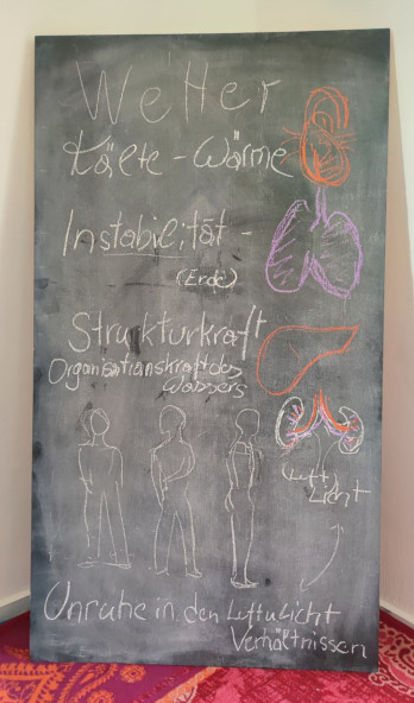 Wetter
Kälte - Wärme
Instabilität -
(Erde)
Strukturkraft
Organisationskraft des
Wassers
(Luft)
Licht
Unruhe in den Luft u Licht
Verhältnissen